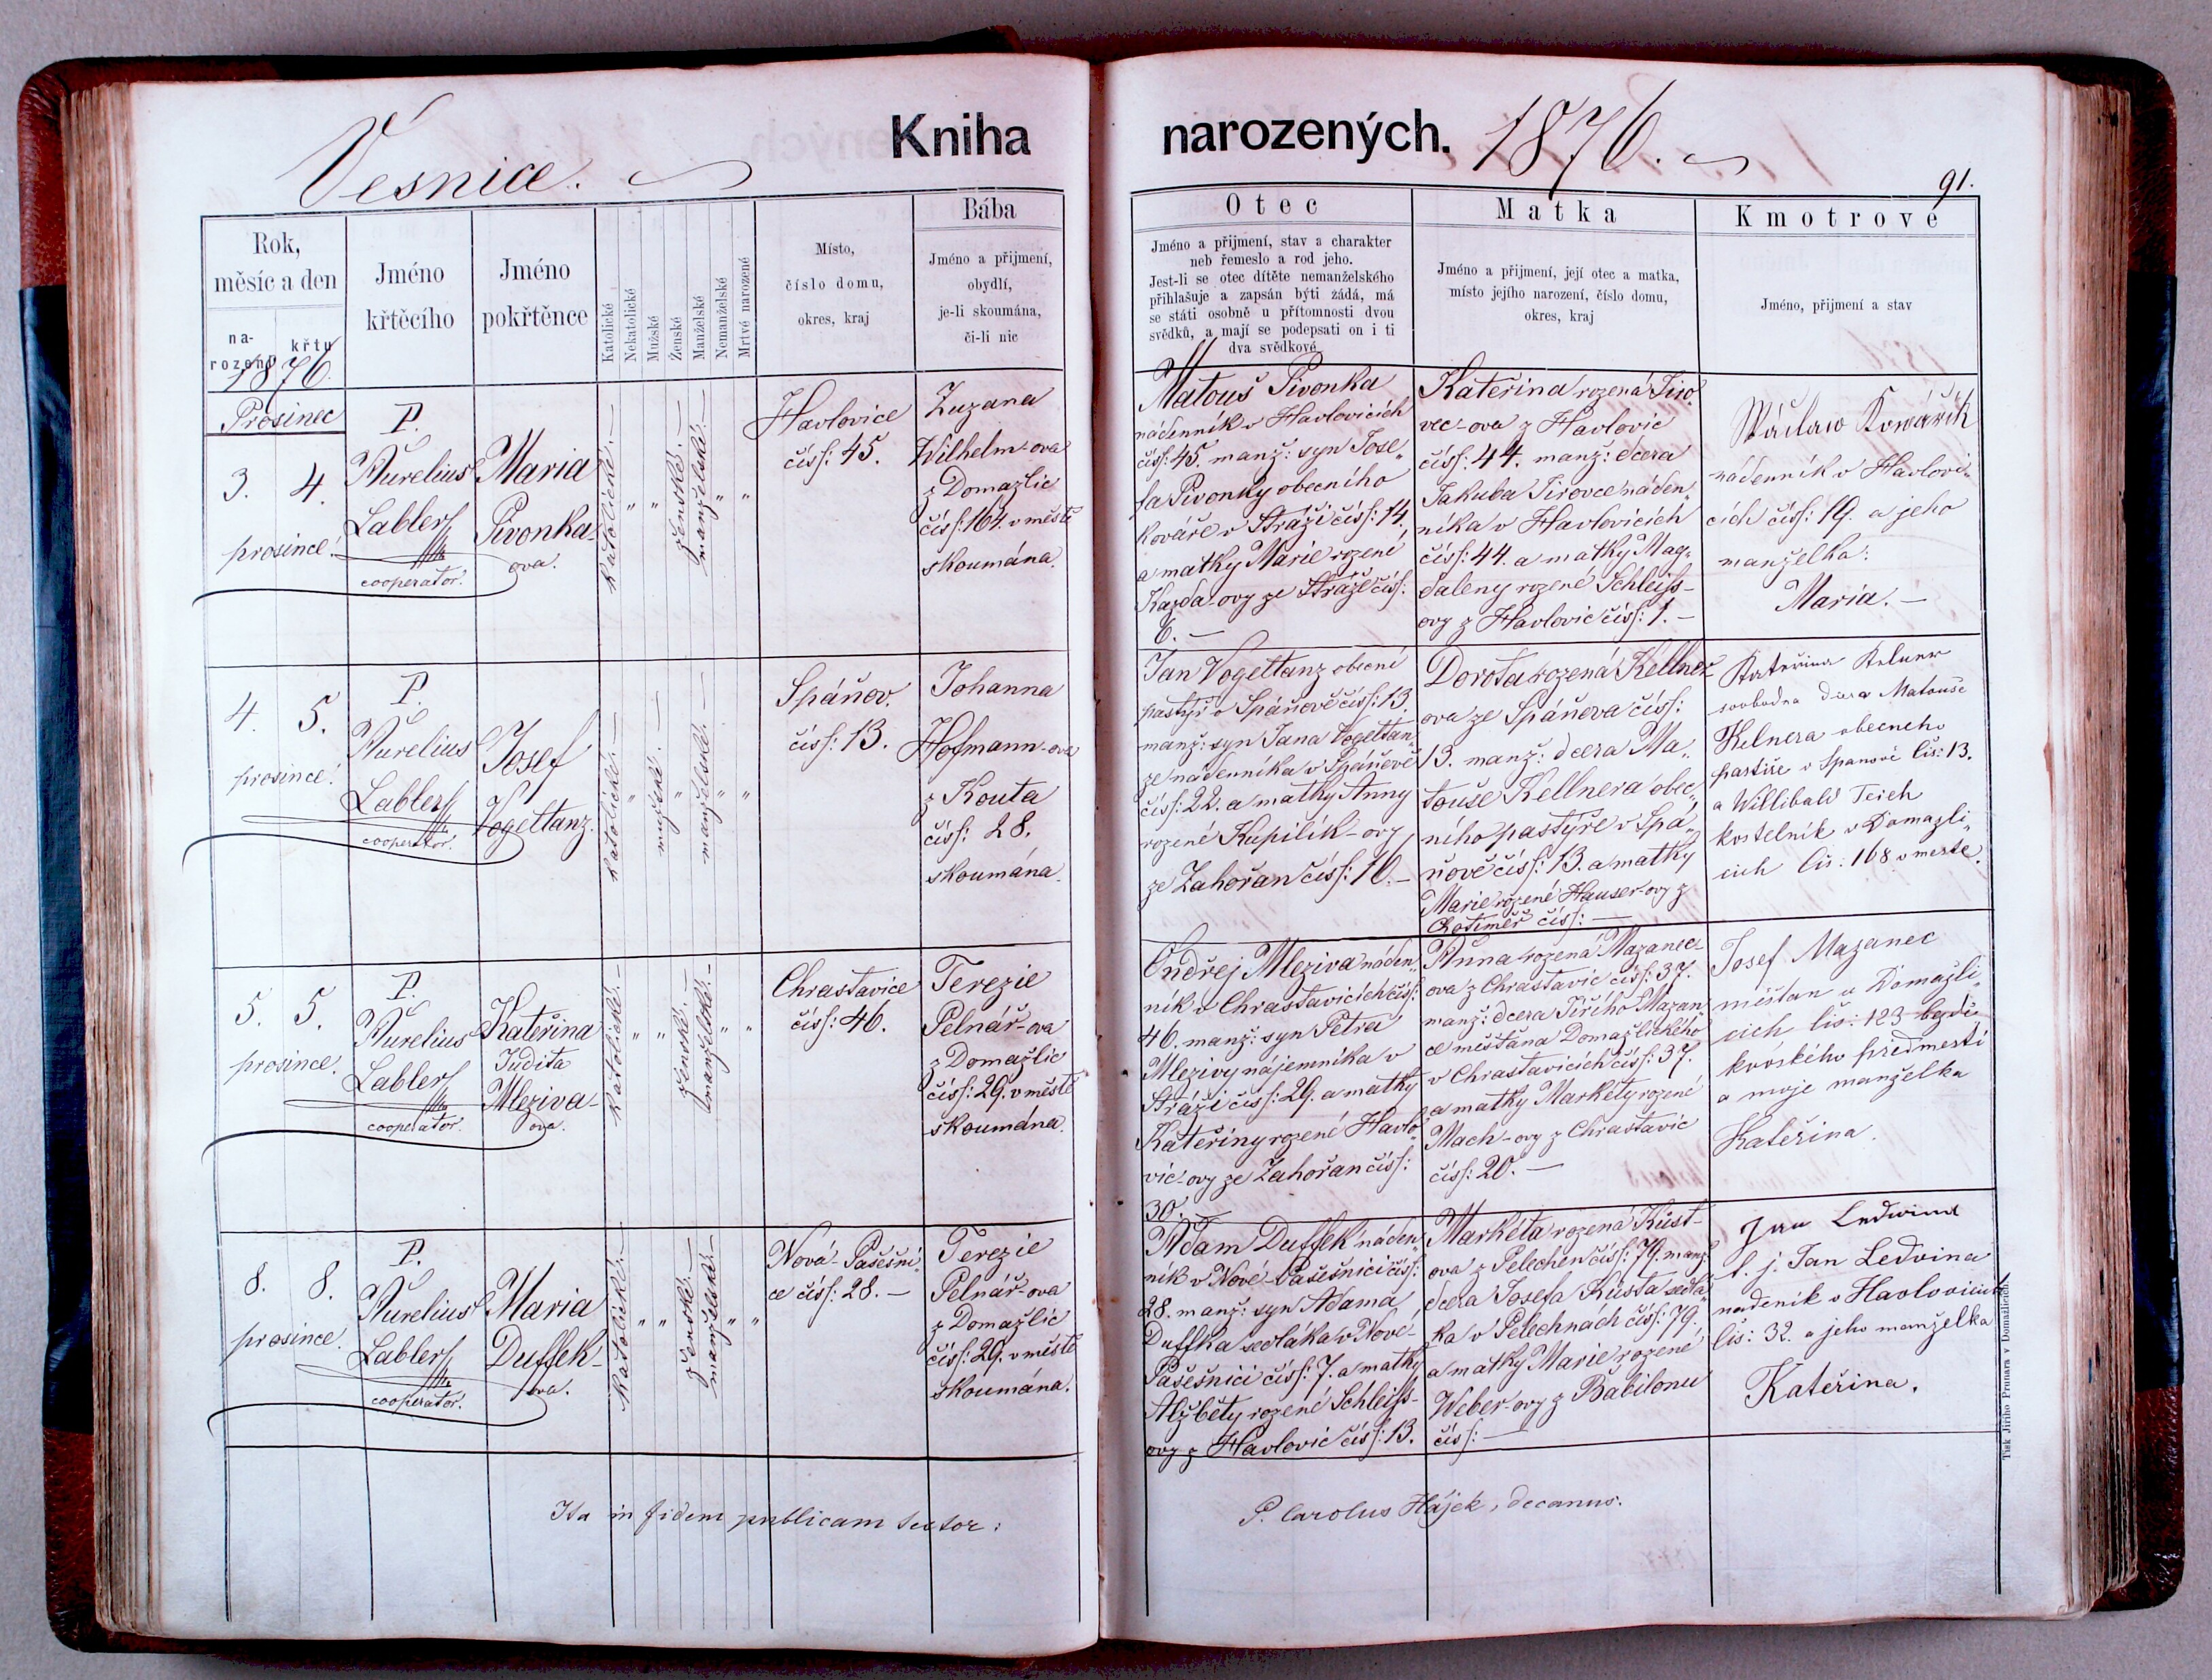 Vesnice.
Kniha
narozených. 1876.
91.
Rok,
měsíc a den
na-
rození
křtu
1876.
Jméno
křtěcího
Jméno
pokřtěnce
Katolické
Nekatolické
Mužské
Ženské
Manželské
Nemanželské
Mrtvě narozené
Místo,
číslo domu,
okres, kraj
Bába
Jméno a přijmení,
obydlí,
je-li skoumána,
či-li nic
Otec
Jméno a přijmení, stav a charakter
neb řemeslo a rod jeho.
Jest-li se otec dítěte nemanželského
přihlašuje a zapsán býti žádá, má
se státi osobně u přítomnosti dvou
svědků, a mají se podepsati on i ti
dva svědkové
Matka
Jméno a přijmení, její otec a matka,
místo jejího narození, číslo domu,
okres, kraj
Kmotrové
Jméno, přijmení a stav
Prosinec
3. 4.
prosince.
P.
Aurelius
Labler
cooperator.
Maria
Pivonka-
ova.
katolické.—
„
„
ženské.—
manželské.—
„
„
Havlovice
čísl: 45.
Zuzana
Wilhelm-ova
z Domažlic
čísl: 164. v městě
skoumána.
Matouš Pivonka
nádenník v Havlovicích
čísl: 45. manž: syn Jose„
fa Pivonky obecního
kováře v Stráži čísl: 14.
a matky Marie rozené
Kazda-ovy ze Stráže čísl:
6.—
Kateřina rozená Jiro„
vec-ova z Havlovic
čísl: 44. manž: dcera
Jakuba Jirovce náden„
níka v Havlovicích
čísl: 44. a matky Mag„
daleny rozené Schleiss-
ovy z Havlovic čísl: 1.—
Wáclaw Kowářík
nádenník v Havlovi„
cích čísl: 19. a jeho
manželka:
Maria.—
4. 5.
prosince.
P.
Aurelius
Labler
cooperator.
Josef
Vogeltanz.
katolické.—
„
mužské.—
„
manželské.—
„
„
Spáňov.
čísl: 13.
Johanna
Hofmann-ova
z Kouta
čísl: 28.
skoumána.
Jan Vogeltanz obecní
pastýř v Spáňově čísl: 13.
manž: syn Jana Vogeltan„
ze nádenníka v Spáňově
čísl: 22. a matky Anny
rozené Kupilík-ovy
ze Zahořan čísl: 16.—
Dorota rozená Kellner
ova ze Spáňova čísl:
13. manž: dcera Ma„
touše Kellnera obec„
ního pastýře v Spá„
ňově čísl: 13. a matky
Marie rozené Hauser-ovy z
Chotiměř čísl:—
Kateřina Kelner
svobodna dcera Matouše
Kelnera obecneho
pastiře v Spanově čis: 13.
a Willibald Teich
kostelník v Domazli„
cich čis: 168 v meste.
5. 5.
prosince.
P.
Aurelius
Labler
cooperator.
Kateřina
Judita
Mleziva-
ova.
katolické.—
„
„
ženské.—
manželské.—
„
„
Chrastavice
čísl: 46.
Terezie
Pelnář-ova
z Domažlic
čísl: 29. v městě
skoumána.
Ondřej Mleziva náden„
ník v Chrastavicích čísl:
46. manž: syn Petra
Mlezivy nájemníka v
Stráži čísl: 29. a matky
Kateřiny rozené Havlo„
vic-ovy ze Zahořan čísl:
30.—
Anna rozená Mazanec-
ova z Chrastavic čísl: 37.
manž: dcera Jiřího Mazan„
ce měšťana Domažlického
v Chrastavicích čísl: 37.
a matky Markéty rozené
Mach-ovy z Chrastavic
čísl: 20.—
Josef Mazanec
měštan v Domažli„
cich čis: 123
předmesti
a moje manželka
Kateřina.
8. 8.
prosince.
P.
Aurelius
Labler
cooperator.
Maria
Duffek-
ova.
katolické.—
„
„
ženské.—
manželské.—
„
„
Nová-Pašešni„
ce čísl: 28.—
Terezie
Pelnář-ova
z Domažlic
čísl: 29. v městě
skoumána.
Adam Duffek náden„
ník v Nové-Pašešnici čísl:
28. manž: syn Adama
Duffka sedláka v Nové-
Pašešnici čísl: 7. a matky
Alžběty rozené Schleiss-
ovy z Havlovic čísl: 13.
Markéta rozená Kust-
ova z Pelechen čísl: 79. manž:
dcera Josefa Kusta sedlá„
ka v Pelechnách čísl: 79.
a matky Marie rozené
Weber-ovy z Babilonu
čísl:—
Jan Ledwina
t. j. Jan Ledvina
nadeník v Havlovicich
čis: 32. a jeho manželka
Kateřina.
Ita in fidem publicam testor:
P. Carolus Hájek, decanus.
Tisk Jiřího Prunara v Domažlicích.